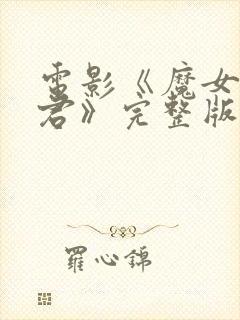 電影《魔女
君》完整版
羅心錦